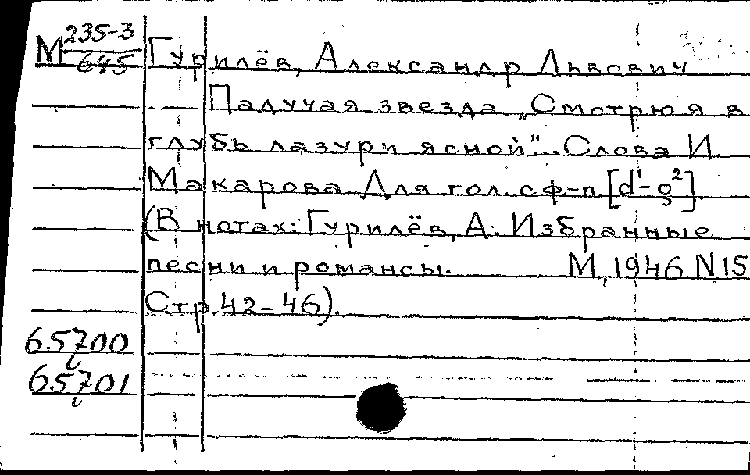 М 235-3
645
Гурилёв, Александр Львович
Падучая звезда „Смотрю я в
глубь лазури ясной". Слова И.
Макарова. Для гол. с ф-п. [d¹-g²]
(В нотах: Гурилёв, А. Избранные
песни и романсы. М., 1946 N15
Стр. 42-46).
65700
65701